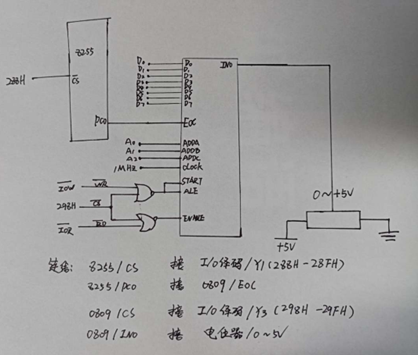 8255
288H
CS
PC0
D0
D1
D2
D3
D4
D5
D6
D7
D0
D1
D2
D3
D4
D5
D6
D7
IN0
EOC
A0
A1
A2
1MHz
ADDA
ADDB
ADDC
CLOCK
START
ALE
ENABLE
IOW
WR
298H
CS
IOR
RD
0~+5V
+5V
连线: 8255/CS 接 I/O译码/Y1(288H-28FH)
8255/PC0 接 0809/EOC
0809/CS 接 I/O译码/Y3(298H-29FH)
0809/IN0 接 电位器/0~5V